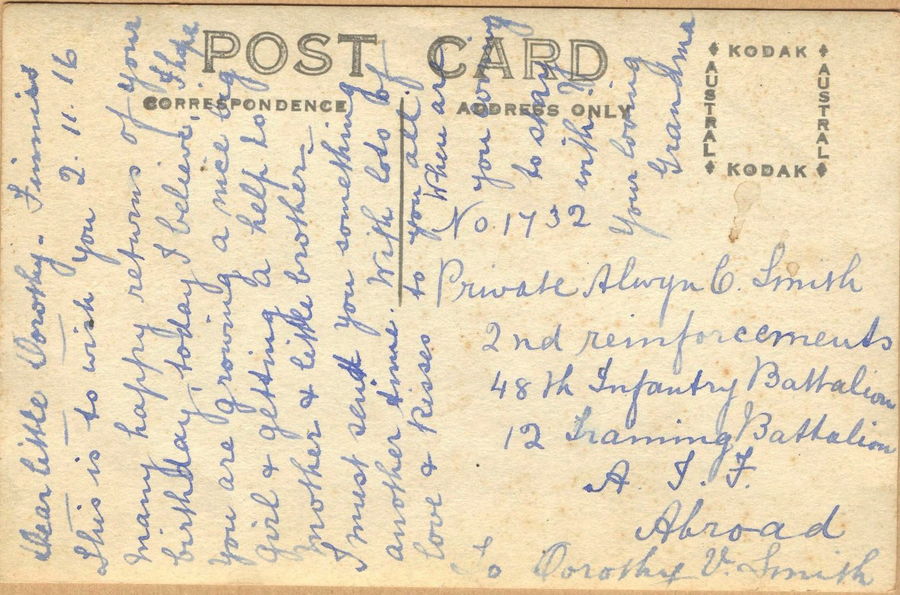 POST CARD
CORRESPONDENCE
ADDRESS ONLY
KODAK
AUSTRAL
AUSTRAL
KODAK
Dear little Dorothy. Finniss
2. 11. 16
This is to wish you
many happy returns of your
birthday, today I believe, I hope
you are growing a nice big
girl & getting a help to
mother & little brother—
I must send you something
another time. With lots of
love & kisses to you all.
When are
you coming
to stay
with
Your loving
Grandma
No 1732
Private Alwyn C. Smith
2nd reinforcements
48th Infantry Battalion
12 Training Battalion
A I F
Abroad
To Dorothy V. Smith